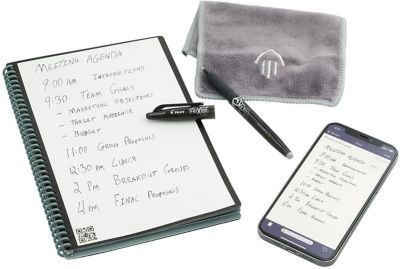 MEETING AGENDA
9:00 AM INTRODUCTIONS
9:30 TEAM GOALS
- MARKETING OBJECTIVES
- TARGET AUDIENCE
- BUDGET
11:00 GROUP PROPOSALS
12:30 PM LUNCH
2 PM BREAKOUT GROUPS
4 PM FINAL PROPOSALS
MEETING AGENDA
9:00 AM INTRODUCTIONS
9:30 TEAM GOALS
- MARKETING OBJECTIVES
- TARGET AUDIENCE
- BUDGET
11:00 GROUP PROPOSALS
12:30 PM LUNCH
2 PM BREAKOUT GROUPS
4 PM FINAL PROPOSALS